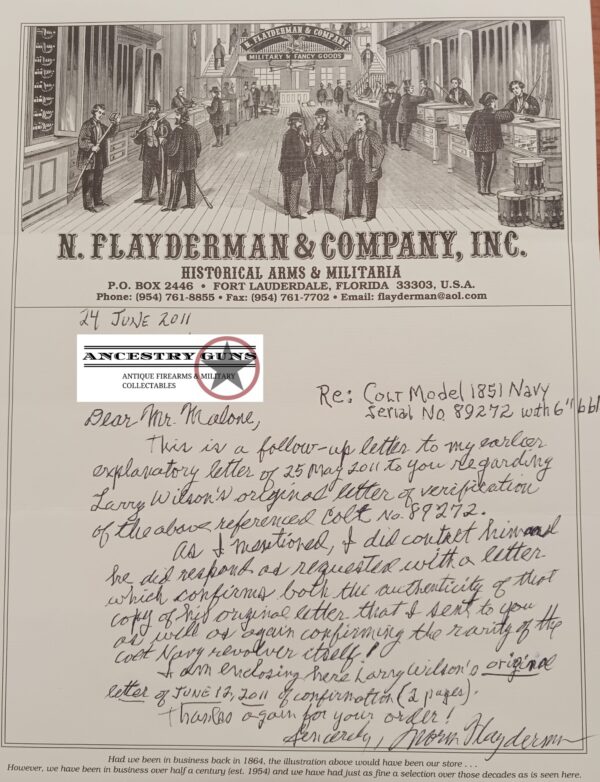 N. FLAYDERMAN & COMPANY
MILITARY & FANCY GOODS
N. FLAYDERMAN & COMPANY, INC.
HISTORICAL ARMS & MILITARIA
P.O. BOX 2446 • FORT LAUDERDALE, FLORIDA 33303, U.S.A.
Phone: (954) 761-8855 • Fax: (954) 761-7702 • Email: flayderman@aol.com
24 JUNE 2011
ANCESTRY GUNS
ANTIQUE FIREARMS & MILITARY
COLLECTABLES
Re: COLT Model 1851 Navy
Serial No. 89272 with 6" bbl
Dear Mr. Malone,
This is a follow-up letter to my earlier
explanatory letter of 25 May 2011 to you regarding
Larry Wilson's original letter of verification
of the above referenced Colt No. 89272.
As I mentioned, I did contact him and
he did respond as requested with a letter
which confirms both the authenticity of that
copy of his original letter that I sent to you
as well as again confirming the rarity of the
Colt Navy revolver itself!
I am enclosing here Larry Wilson's original
letter of JUNE 13, 2011 of confirmation (2 pages).
Thanks again for your order!
Sincerely, Norm Flayderman
Had we been in business back in 1864, the illustration above would have been our store . . .
However, we have been in business over half a century (est. 1954) and we have had just as fine a selection over those decades as is seen here.